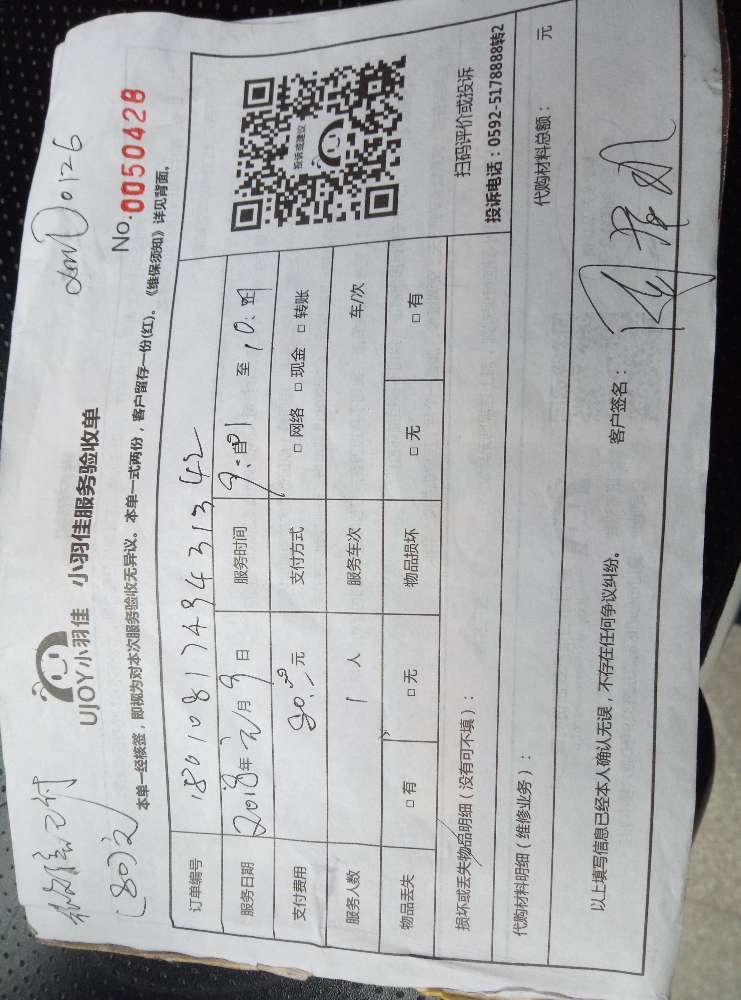 微信已付
(80元)
0126
UJOY小羽佳 小羽佳服务验收单
No.0050428
本单一经核签，即视为对本次服务验收无异议。本单一式两份，客户留存一份(红)。《维保须知》详见背面。
订单编号 1801081743431342
服务日期 2018年元月9日 服务时间 至
支付费用 80.00元 支付方式 □ 网络 □ 现金 □ 转账
服务人数 1 人 服务车次 车/次
物品丢失 □ 有 □ 无 物品损坏 □ 无 □ 有
投诉或建议
扫码评价或投诉
投诉电话：0592-5178888转2
损坏或丢失物品明细（没有可不填）：
代购材料明细（维修业务）： 代购材料总额： 元
以上填写信息已经本人确认无误，不存在任何争议纠纷。
客户签名：